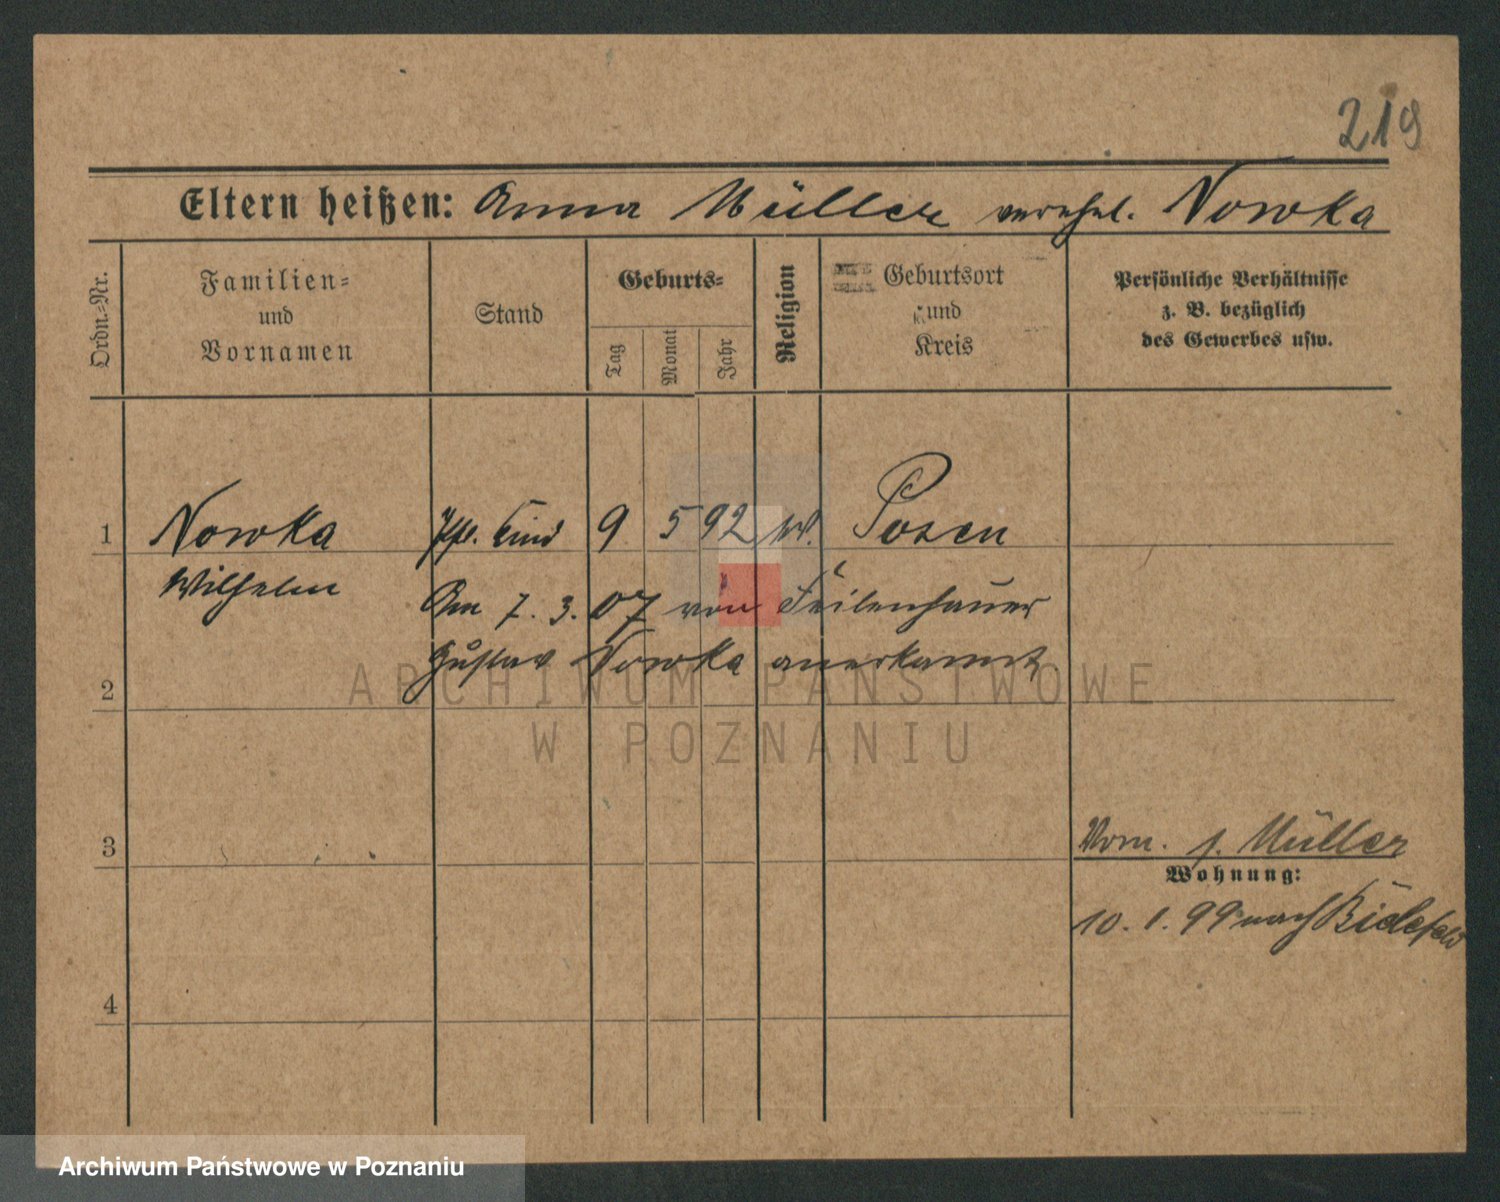 219
Eltern heißen: Anna Müller verehel. Nowka
Ordn.-Nr.
Familien-
und
Vornamen
Stand
Geburts-
Tag
Monat
Jahr
Religion
Geburtsort
und
Kreis
Persönliche Verhältnisse
z. B. bezüglich
des Gewerbes usw.
1 Nowka Kind 9 5 92 Posen
Wilhelm
Am 7. 3. 07 von Feilenhauer
Gustav Nowka anerkannt
2
ARCHIWUM PAŃSTWOWE
W POZNANIU
3
Vorm. s. Müller
Wohnung:
10. 1. 99 nach Bielefeld
4
Archiwum Państwowe w Poznaniu